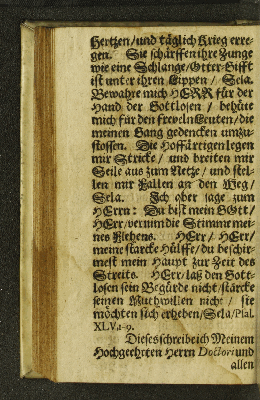 Hertzen/ und täglich Krieg erre-
gen. Sie schärffen ihre Zunge
wie eine Schlange/ Otter-Gifft
ist unter ihren Lippen/ Sela.
Bewahre mich HERR für der
Hand der Gottlosen/ behüte
mich für den freveln Leuten/ die
meinen Gang gedencken umzu-
stossen. Die Hoffärtigen legen
mir Stricke/ und breiten mir
Seile aus zum Netze/ und stel-
len mir Fallen an den Weg/
Sela. Ich aber sage zum
HErrn: Du bist mein GOtt/
HErr/ vernim die Stimme mei-
nes Flehens. HErr/ HErr/
meine starcke Hülffe/ du beschir-
mest mein Haupt zur Zeit des
Streits. HErr/ laß den Gott-
losen sein Begürde nicht/ stärcke
seinen Muthwillen nicht/ sie
möchten sich erheben/ Sela/ Psal.
XLV.1-9.
Dieses schreibe ich Meinem
Hochgeehrten Herrn Doctori und
allen